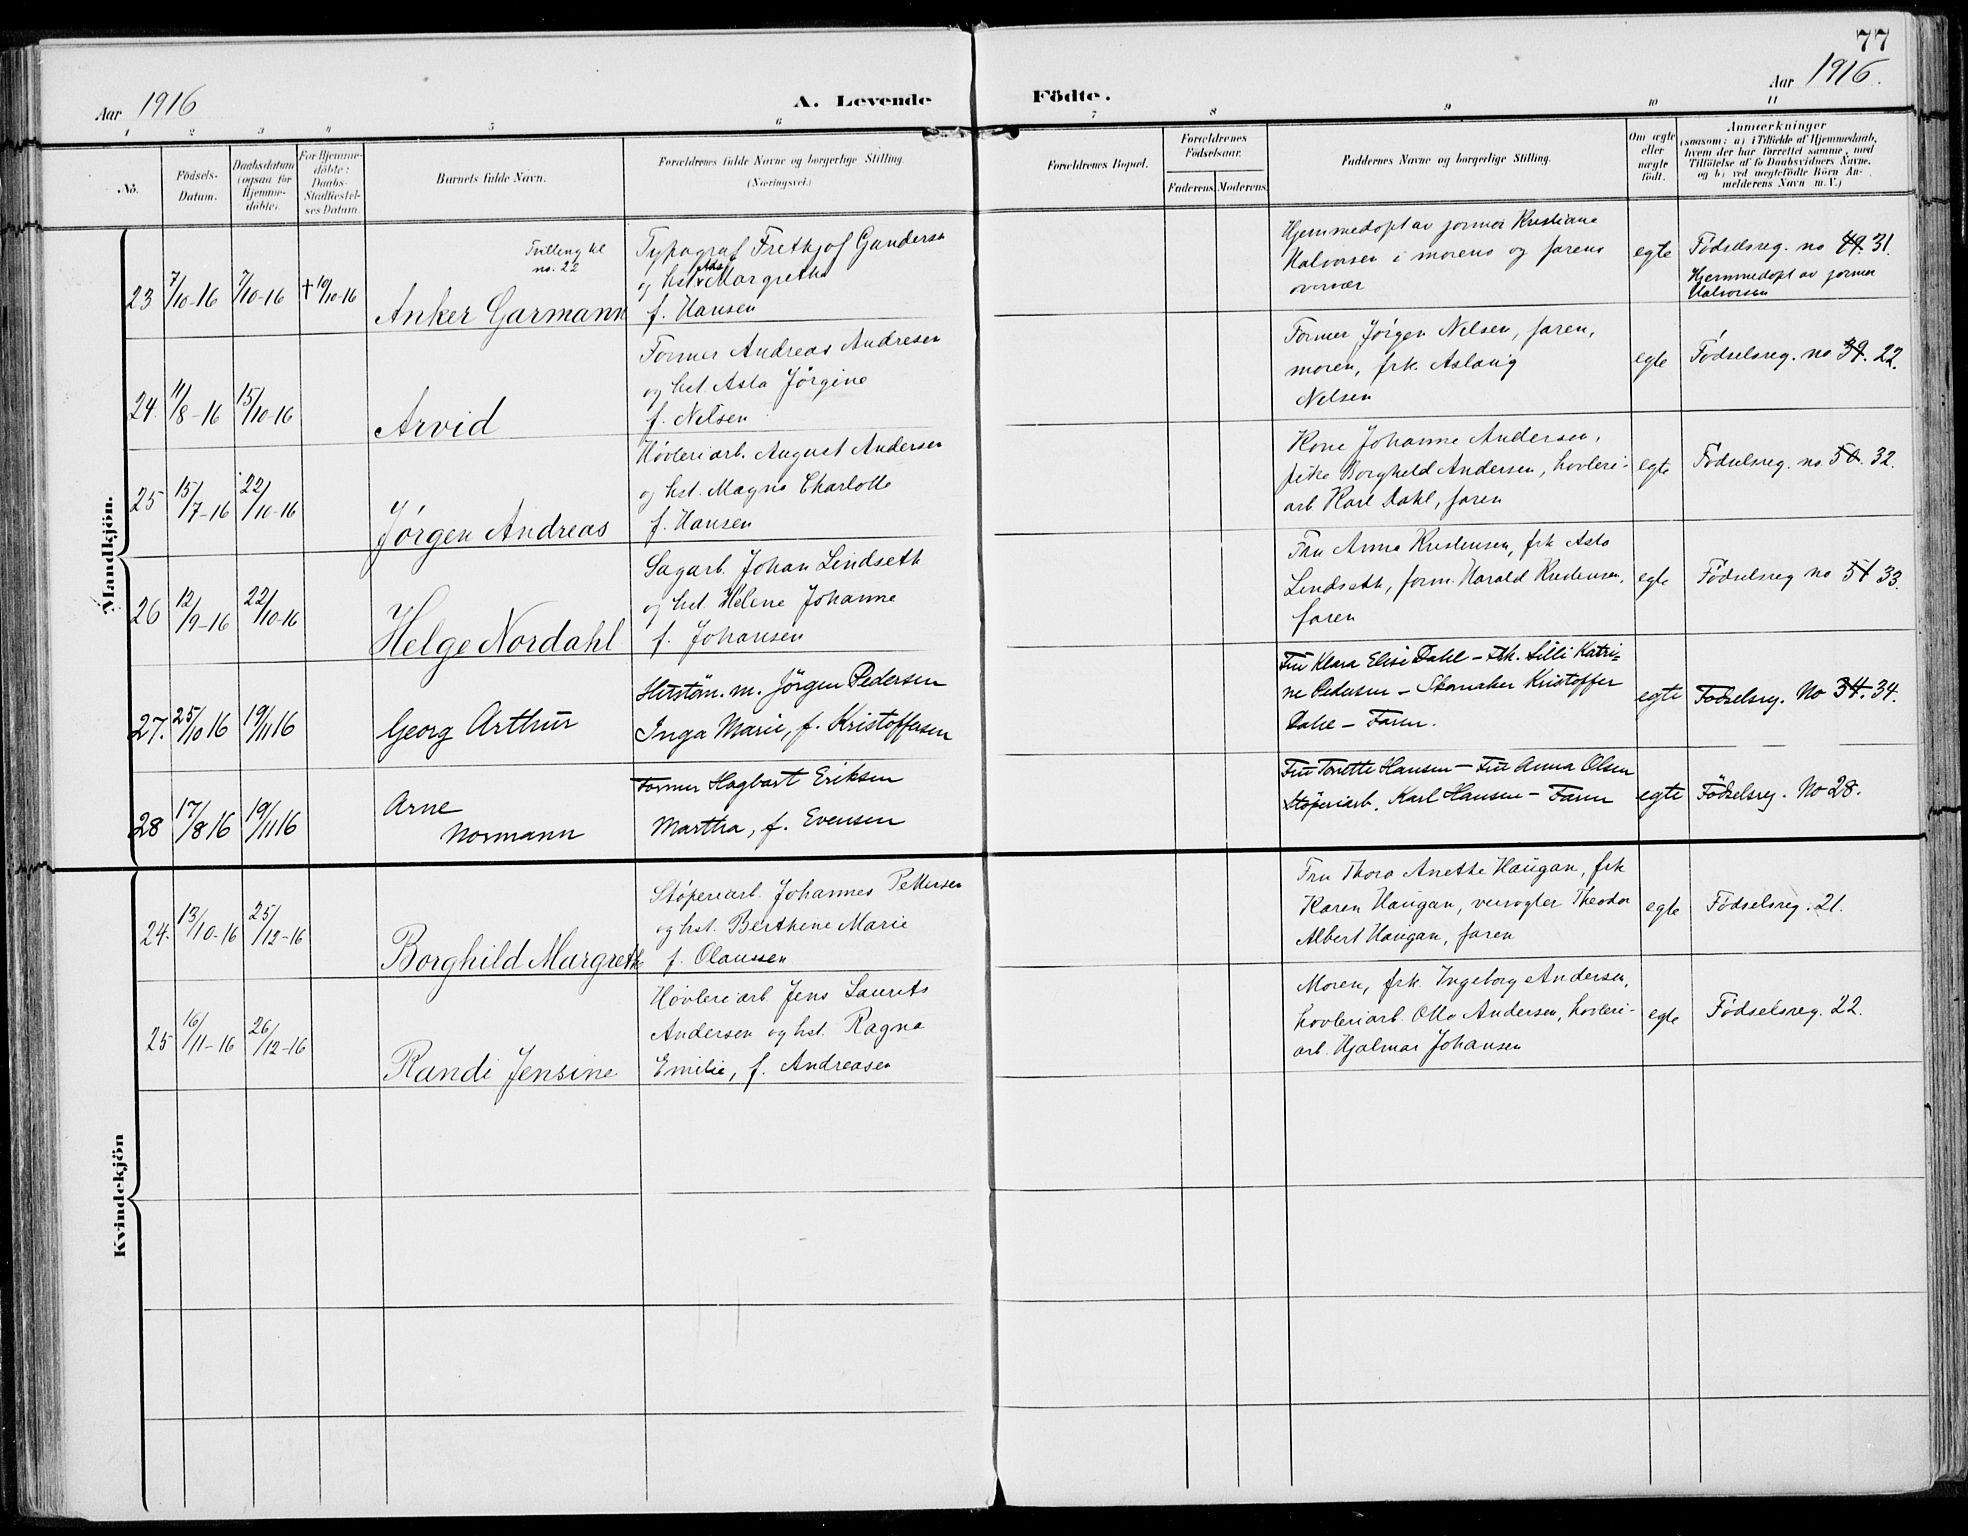 77
Aar 1916
A. Levende Födte.
Aar 1916.
1 2 3 4 5 6 7 8 9 10 11
No.
Födsels-
Datum.
Daabsdatum
(ogsaa for
Hjemme-
döbte).
For Hjemme-
döbte:
Daabs-
Stadfæstel-
ses Datum.
Barnets fulde Navn.
Forældrenes fulde Navne og borgerlige Stilling.
(Næringsvei.)
Forældrenes Bopæl.
Forældrenes
Födselsaar.
Faderens. Moderens.
Faddernes Navne og borgerlige Stilling.
Om ægte
eller
uægte
födt.
Anmærkninger
(saasom: a) i Tilfælde af Hjemmedaab,
hvem der har forrettet samme, med
Tilföielse af to Daabsvidners Navne,
og b) ved uægtefödte Börn An-
melderens Navn m. V.)
Mandkjön.
23 7/10-16 7/10-16 † 10/10-16
Tvilling til
no. 22
Anker Garmann
Typograf Frethjof Gundersen
og hst. Margrethe
f. Hansen
Hjemmedøpt av jormor Kristiane
Halvorsen i morens og farens
overvær
egte
Fødselsreg. no 49. 31.
Hjemmedøpt av jormor
Halvorsen
24. 11/8-16 15/10-16
Arvid
Former Andreas Andresen
og hst. Asta Jørgine
f. Nelsen
Former Jørgen Nelsen, faren,
moren, frk. Aslaug
Nelsen
egte
Fødselsreg. no 39. 22.
25 15/7-16 22/10-16
Jørgen Andreas
Høvleriarb. August Andersen
og hst. Magna Charlotte
f. Hansen
Kone Johanne Andersen,
pike Borghild Andersen, høvleri-
arb. Karl Dahl, faren
egte
Fødselsreg. no. 50. 32.
26 12/9-16 22/10-16
Helge Nordahl
Sagarb. Johan Lindseth
og hst. Helene Johanne
f. Johansen
Fru Anna Kristensen, frk Asta
Lindseth, form. Harald Kristensen,
faren
egte
Fødselsreg no 51 33.
27. 25/10 16 19/11 16
Georg Arthur
m. Jörgen Pedersen
Inga Marie, f. Kristoffersen
Fru Klara Elise Dahl – Frk. Lilli Katri-
ne Pedersen – Skomaker Kristoffer
Dahl – Faren.
egte
Födselsreg. No 34. 34.
28 17/8 16 19/11 16
Arne
Normann
Former Hagbart Eriksen
Martha, f. Evensen
Fru Tonette Hansen – Fru Anna Olsen
Støperiarb. Karl Hansen – Faren
egte
Födselsreg. No 28.
Kvindekjön
24. 13/10-16 25/12-16
Borghild Margrethe
Støperiarb. Johannes Pettersen
og hst. Berthine Marie
f. Olaussen
Fru Thora Anette Haugan, frk
Karen Haugan, Theodor
Albert Haugan, faren
egte
Fødselsreg. 21.
25 16/11-16 26/12-16
Randi Jensine
Høvleriarb. Jens Laurits
Andersen og hst. Ragna
Emilie, f. Andreasen
Moren, frk. Ingeborg Andersen,
høvleriarb. Otto Andersen, høvleri-
arb. Hjalmar Johansen
egte
Fødselsreg. 22.